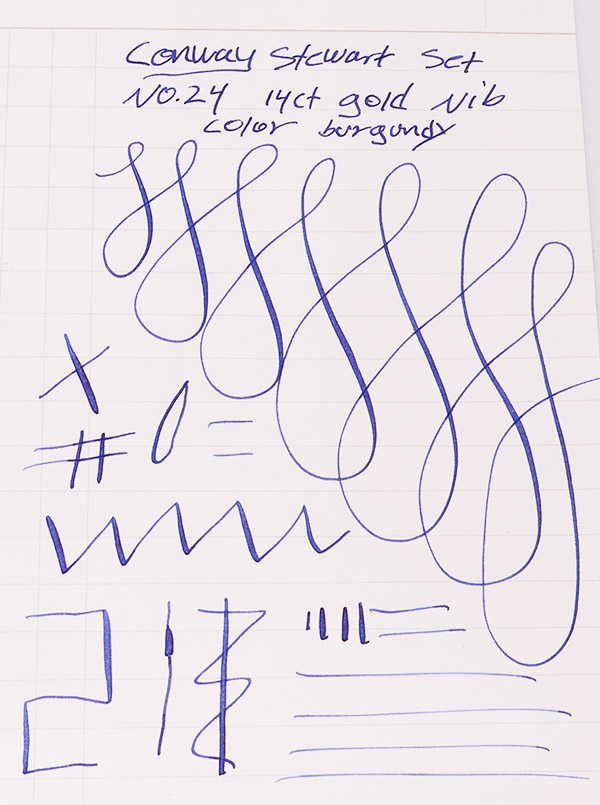 Conway Stewart Set
NO.24 14ct gold Nib
color burgundy